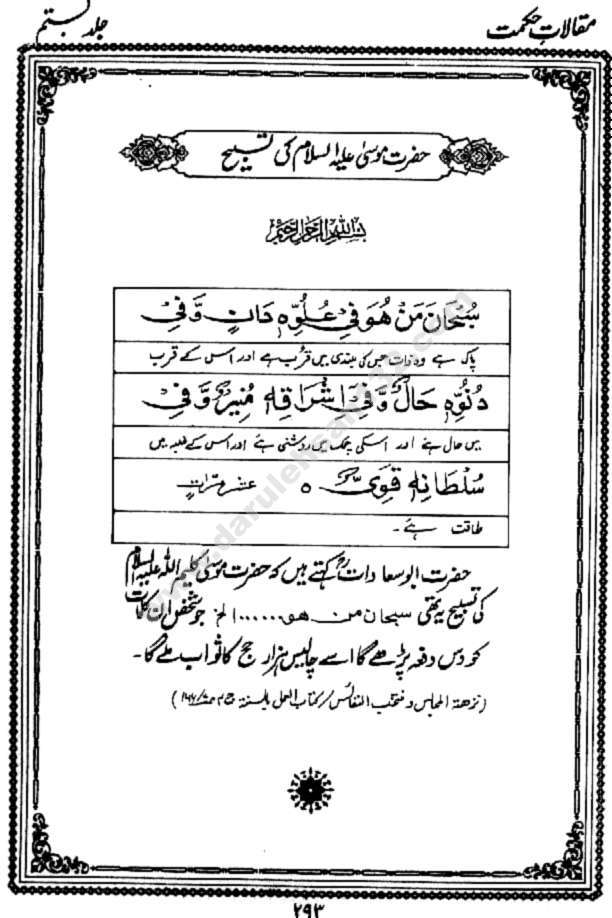 مقالاتِ حکمت
جلد بستم
حضرت موسیٰ علیہ السلام کی تسبیح
بسم اللہ الرحمن الرحیم
سُبْحَانَ مَنْ هُوَ فِي عُلُوِّهٖ دَانٍ وَّفِيْ
پاک ہے وہ ذات جس کی بلندی میں قرب ہے اور اس کے قرب
دُنُوِّهٖ حَالٌ وَّفِيْ اِشْرَاقِهٖ مُنِيْرٌ وَّفِيْ
میں حال ہے اور اسکی چمک میں روشنی ہے اور اس کے غلبہ میں
سُلْطَانِهٖ قَوِيٌّ ٥ عشر مرات
طاقت ہے۔
حضرت ابو سعادات کہتے ہیں کہ حضرت موسیٰ کلیم اللہ علیہ السلام
کی تسبیح یہ تھی سبحان من هو......الخ جو شخص ان کلمات
کو دس دفعہ پڑھے گا اسے چالیس ہزار حج کا ثواب ملے گا۔
(نزهتہ المجالس و منتخب النفائس / کتاب العمل بالسنتہ ج
www.darulehsan
۲۹۳